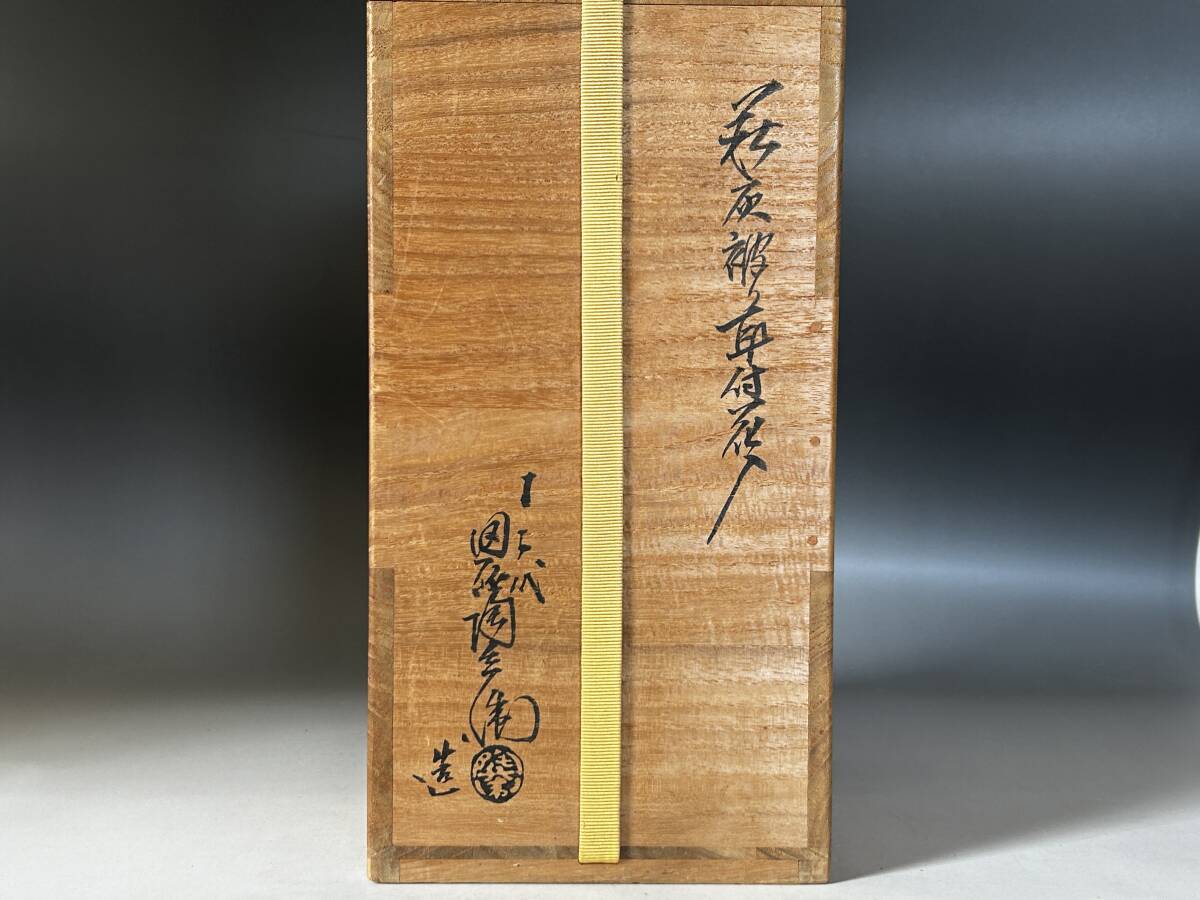 萩灰被り耳付花入
十三代
田原陶兵衛
造